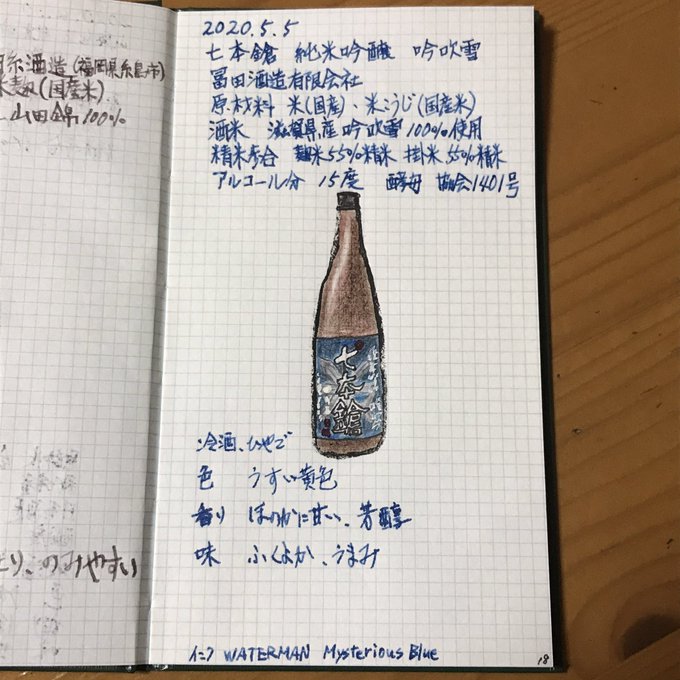 糸酒造(福岡県糸島市)
米麹(国産米)
山田錦100%
のみやすい
2020.5.5
七本鎗 純米吟醸 吟吹雪
冨田酒造有限会社
原材料 米(国産)、米こうじ(国産米)
酒米 滋賀県産吟吹雪100%使用
精米歩合 麹米55%精米 掛米55%精米
アルコール分 15度 酵母 協会1401号
七本鎗
冷酒、ひやで
色 うすい黄色
香り ほのかに甘い、芳醇
味 ふくよか、うまみ
インク WATERMAN Mysterious Blue
18